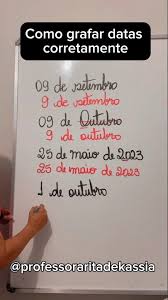 Como grafar datas
corretamente
09 de setembro
9 de setembro
09 de Outubro
9 de outubro
25 de maio de 2.023
25 de maio de 2023
1 de outubro
@professoraritadekassia